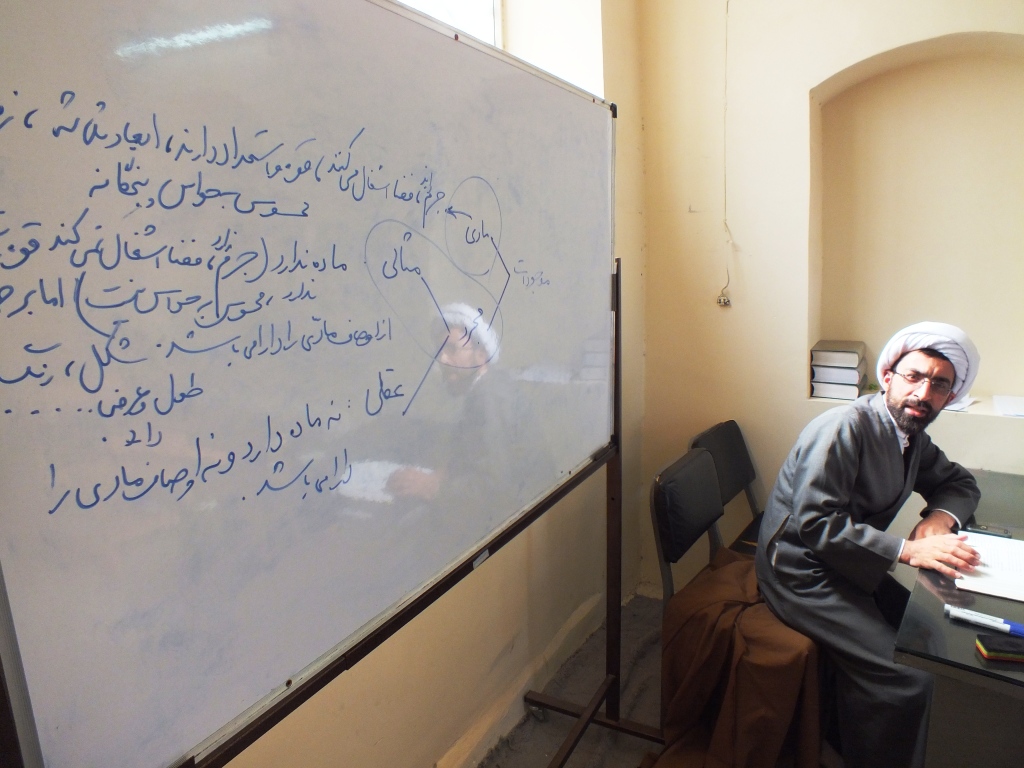 موجودات
مادی
جرم دارند، فضا اشغال می کند، قوه و استعداد دارند، ابعاد ثلاثه،
محسوس به حواس پنجگانه
مجرد
مثالی
ماده ندارد (جرم ندارد، فضا اشغال نمی کند
ندارد، محسوس به حواس نیست) اما برخی
از اوصاف مادی را دارا می باشد. شکل، رنگ
طول و عرض ......
را
عقلی: نه ماده دارد و نه اوصاف مادی را
دارا می باشد.